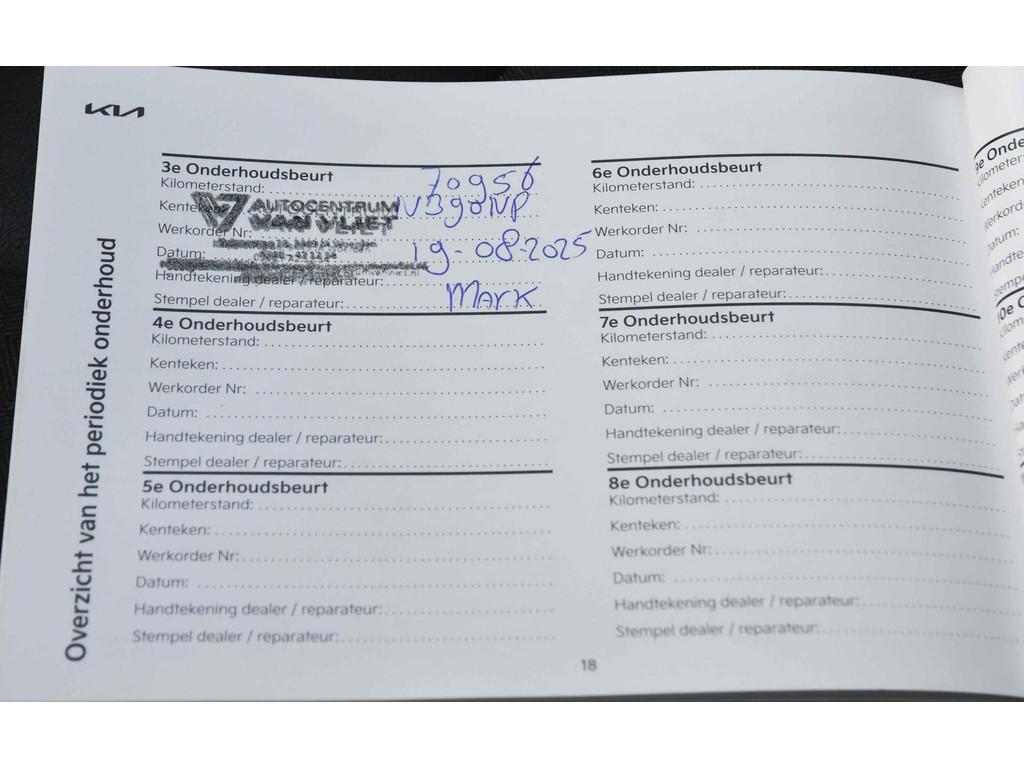 KIA
Overzicht van het periodiek onderhoud
3e Onderhoudsbeurt
Kilometerstand: 70956
Kenteken: N390NP
Werkorder Nr:
Datum: 19-08-2025
Handtekening dealer / reparateur:
Stempel dealer / reparateur: Mark
AUTOCENTRUM
VAN VLIET
4e Onderhoudsbeurt
Kilometerstand:
Kenteken:
Werkorder Nr:
Datum:
Handtekening dealer / reparateur:
Stempel dealer / reparateur:
5e Onderhoudsbeurt
Kilometerstand:
Kenteken:
Werkorder Nr:
Datum:
Handtekening dealer / reparateur:
Stempel dealer / reparateur:
6e Onderhoudsbeurt
Kilometerstand:
Kenteken:
Werkorder Nr:
Datum:
Handtekening dealer / reparateur:
Stempel dealer / reparateur:
7e Onderhoudsbeurt
Kilometerstand:
Kenteken:
Werkorder Nr:
Datum:
Handtekening dealer / reparateur:
Stempel dealer / reparateur:
8e Onderhoudsbeurt
Kilometerstand:
Kenteken:
Werkorder Nr:
Datum:
Handtekening dealer / reparateur:
Stempel dealer / reparateur:
18